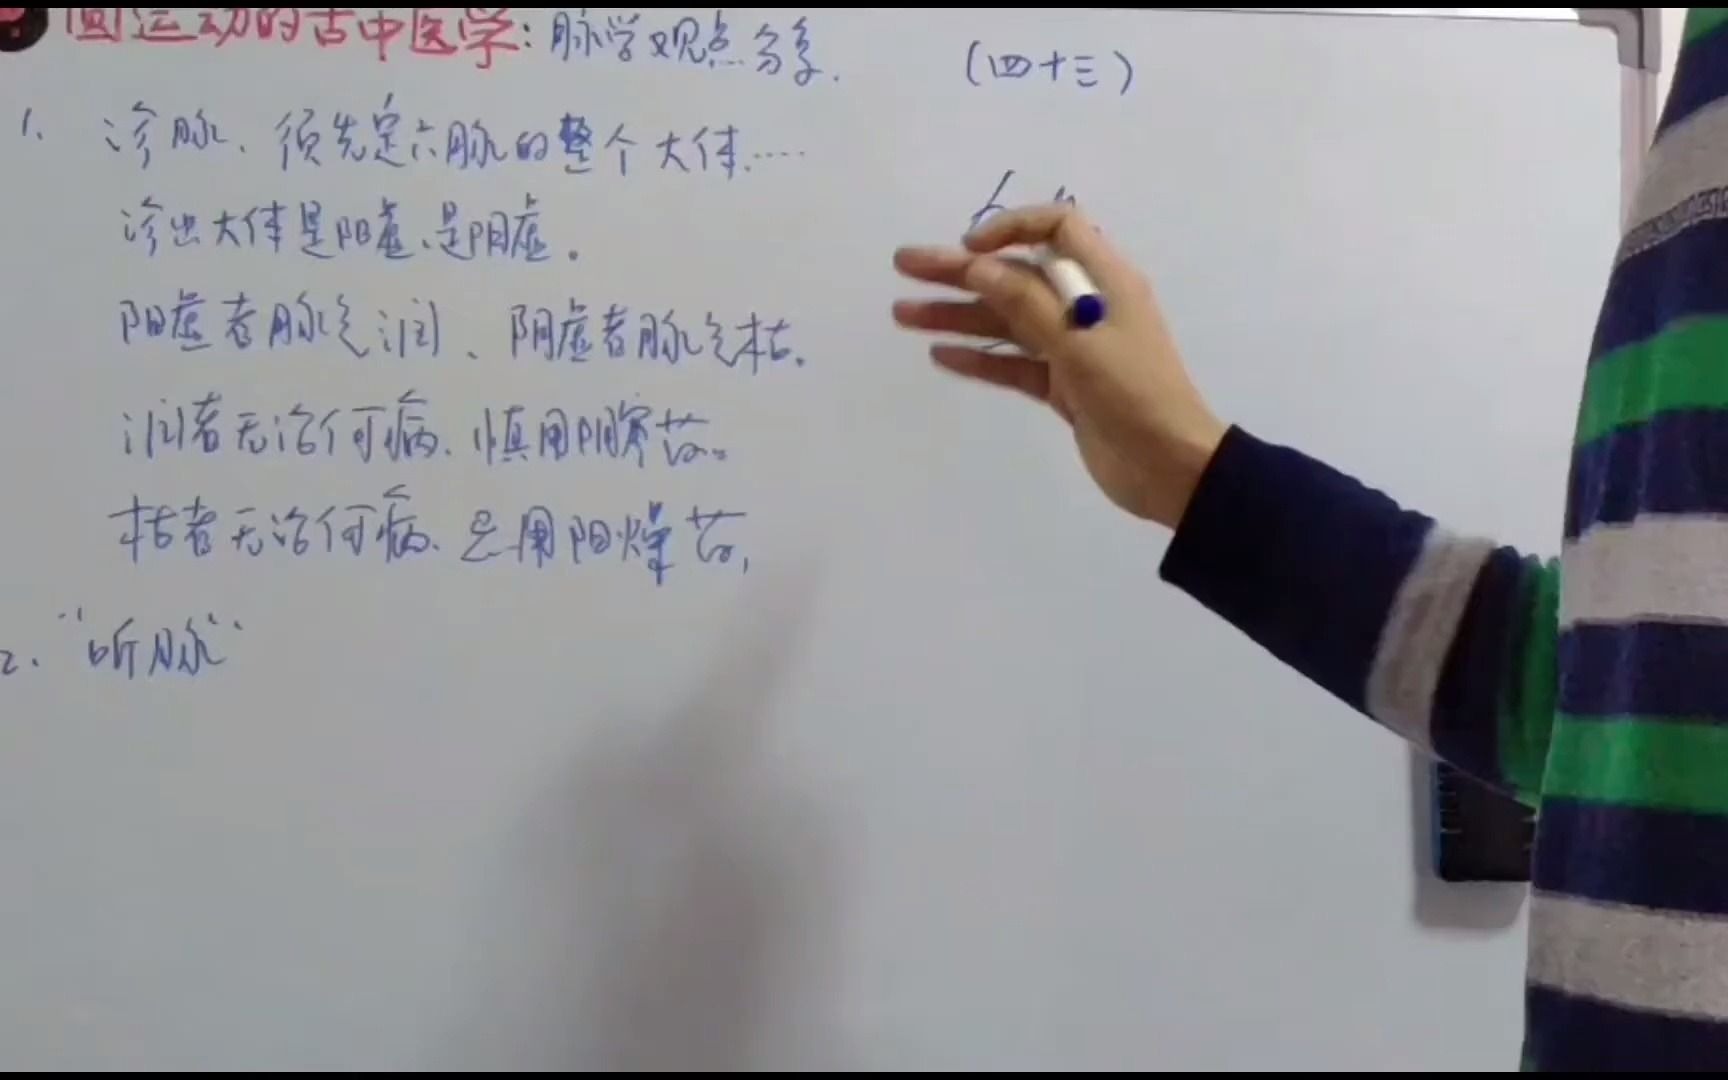 圆运动的古中医学：脉学观点分享.
（四十三）
1、诊脉、须先定六脉的整个大体……
诊出大体是阳虚、是阴虚。
阳虚者脉气润、阴虚者脉气枯。
润者无论何病、慎用阴寒药。
枯者无论何病、忌用阳燥药，
2、“听脉”